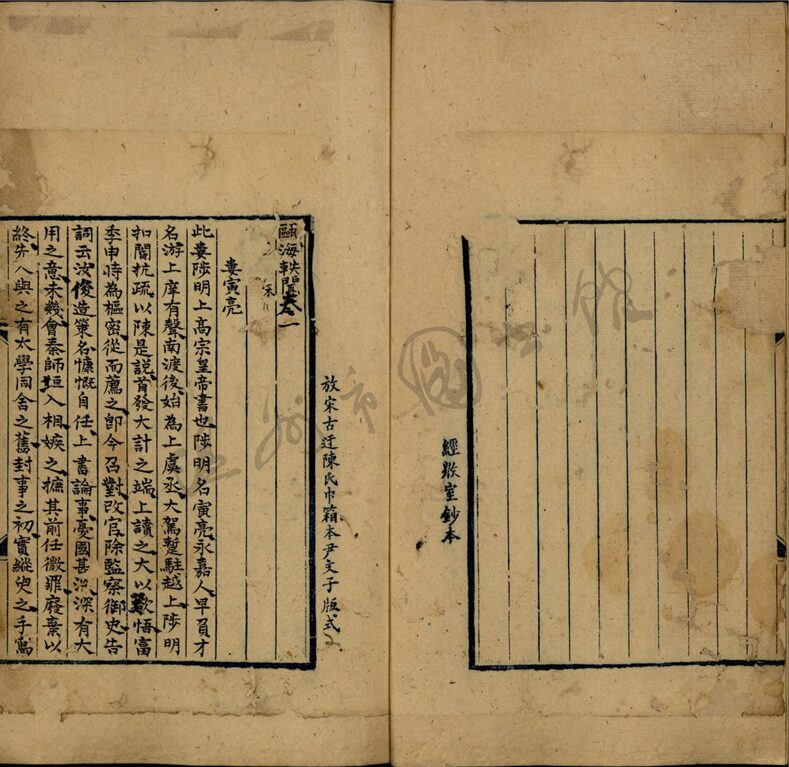 經微室鈔本
放宋古迂陳氏巾箱本尹文子版式
甌海軼聞卷一
宋
婁寅亮
此婁陟明上高宗皇帝書也陟明名寅亮永嘉人早負才
名游上庠有聲南渡後始為上虞丞大駕蹔駐越上陟明
扣閽抗疏以陳是說首發大計之端上讀之大以歎悟富
季申時為樞密從而薦之卽今召對改官除監察御史告
詞云汝俊造筞名慷慨自任上書論事憂國甚深有大
用之意未幾會秦師垣入相嫉之摭其前任微罪廢棄以
終先人與之有太學同舍之舊封事之初實縱臾之手寫